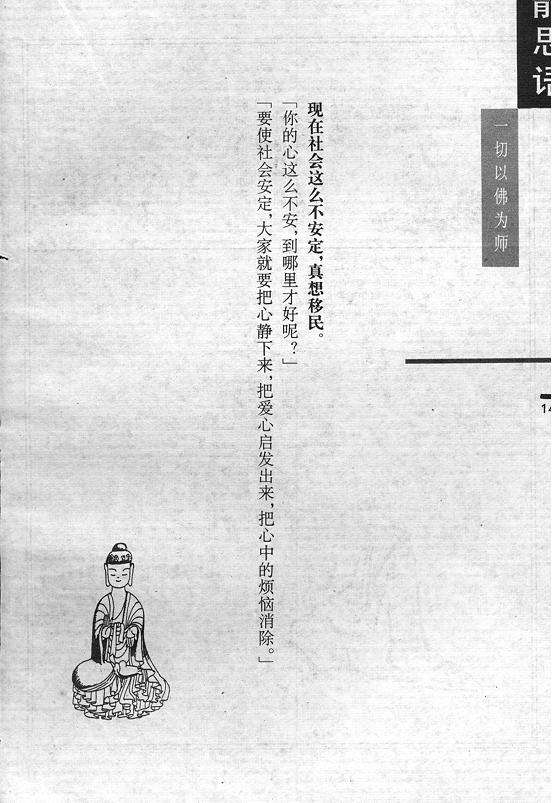 思语
一切以佛为师
14
现在社会这么不安定，真想移民。
「你的心这么不安，到哪里才好呢？」
「要使社会安定，大家就要把心静下来，把爱心启发出来，把心中的烦恼消除。」